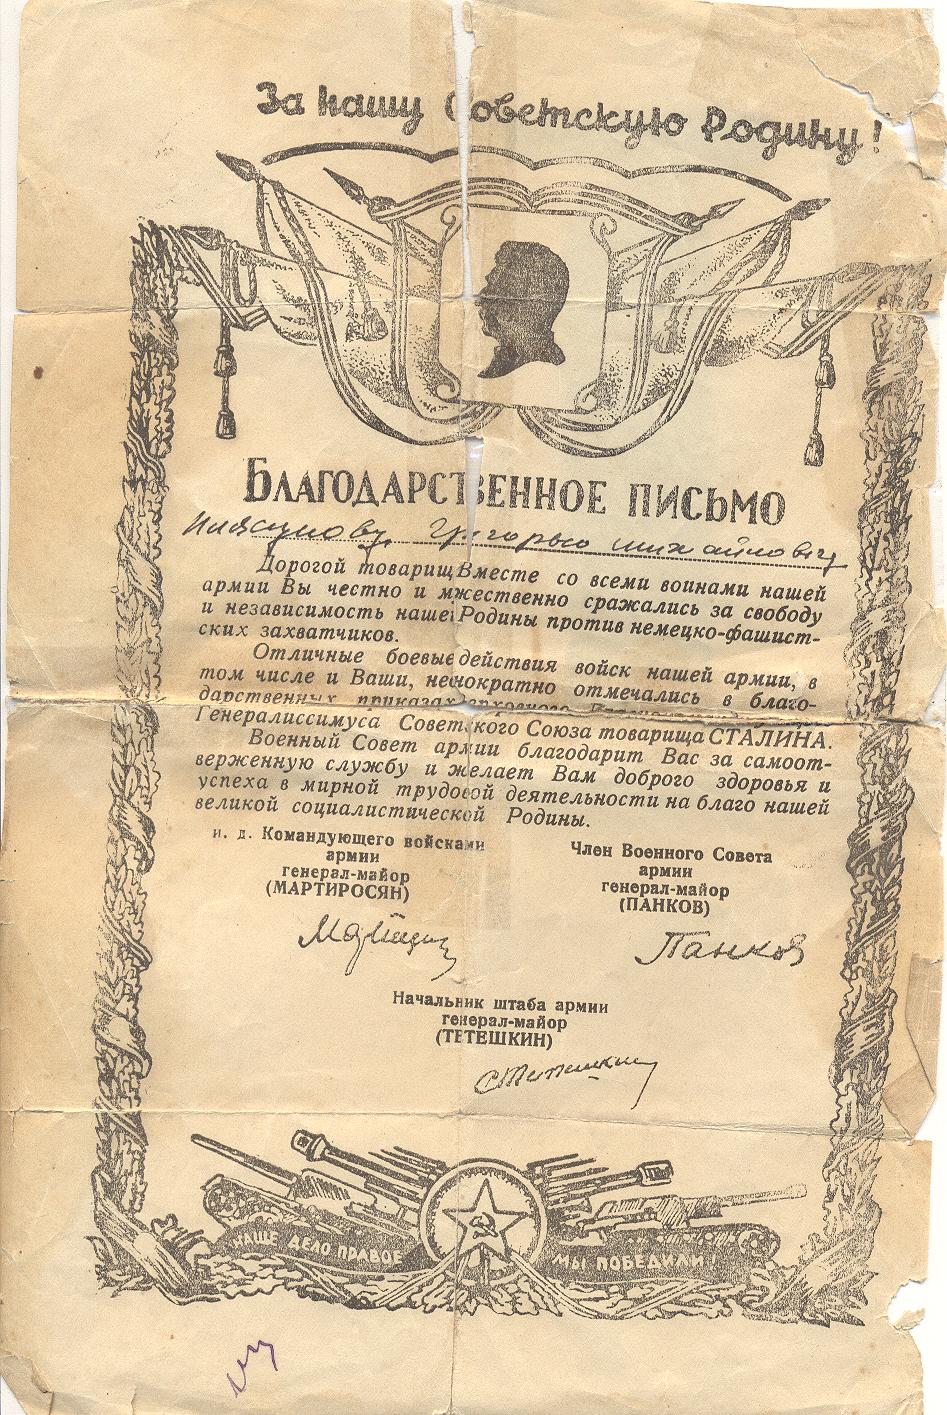 За нашу Советскую Родину!
БЛАГОДАРСТВЕННОЕ ПИСЬМО
Григорью Михайловичу
Дорогой товарищ Вместе со всеми воинами нашей
армии Вы честно и мжественно сражались за свободу
и независимость нашей Родины против немецко-фашист-
ских захватчиков.
Отличные боевые действия войск нашей армии, в
том числе и Ваши, неоднократно отмечались в благо-
дарственных приказах
Генералиссимуса Советского Союза товарища СТАЛИНА.
Военный Совет армии благодарит Вас за самоот-
верженную службу и желает Вам доброго здоровья и
успеха в мирной трудовой деятельности на благо нашей
великой социалистической Родины.
и. д. Командующего войсками
армии
генерал-майор
(МАРТИРОСЯН)
Член Военного Совета
армии
генерал-майор
(ПАНКОВ)
Панков
Начальник штаба армии
генерал-майор
(ТЕТЕШКИН)
НАШЕ ДЕЛО ПРАВОЕ
МЫ ПОБЕДИЛИ!